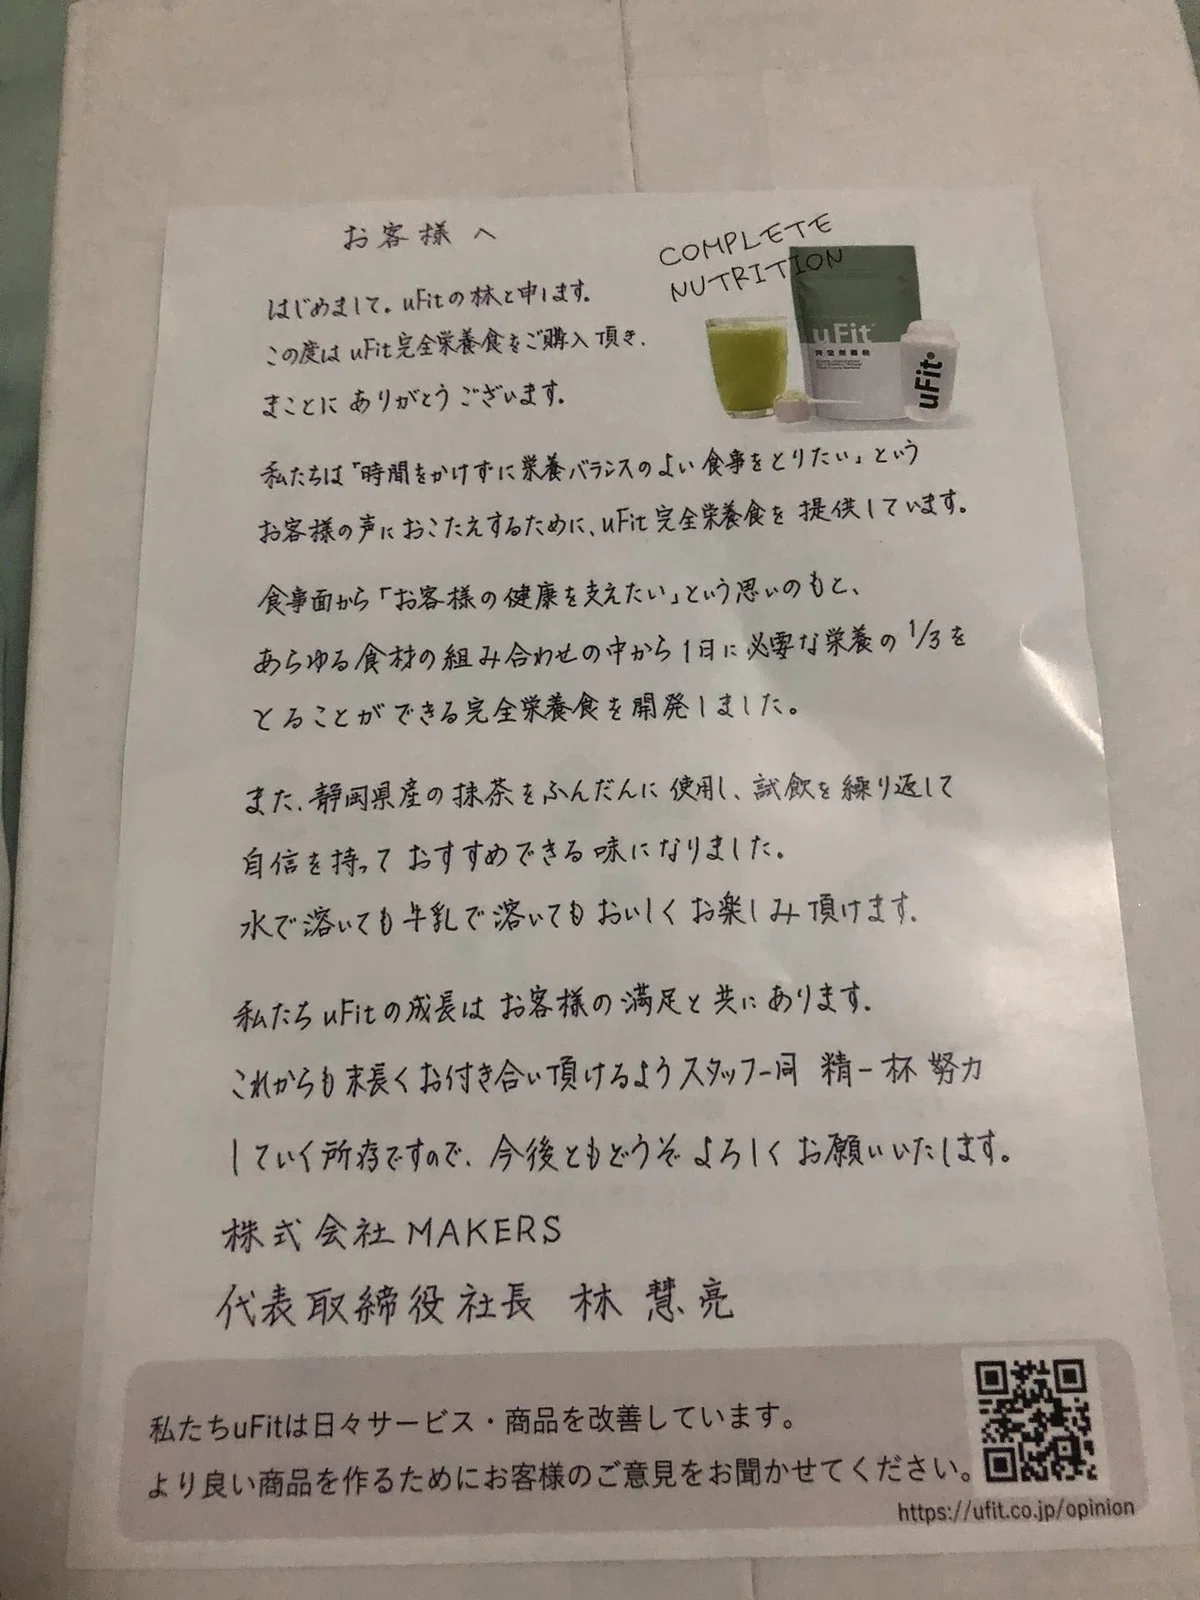 お客様へ
COMPLETE
NUTRITION
uFit
完全栄養食
uFit
はじめまして。uFitの林と申します。
この度は uFit完全栄養食をご購入頂き、
まことに ありがとう ございます。
私たちは「時間をかけずに栄養バランスのよい食事をとりたい」という
お客様の声に おこたえするために、uFit 完全栄養食を 提供しています。
食事面から「お客様の健康を支えたい」という思いのもと、
あらゆる食材の組み合わせの中から1日に必要な栄養の1/3を
とることが できる完全栄養食を開発しました。
また、静岡県産の抹茶をふんだんに使用し、試飲を繰り返して
自信を持って おすすめできる 味になりました。
水で溶いても牛乳で溶いても おいしく お楽しみ頂けます。
私たち uFitの成長は お客様の満足と共にあります。
これからも末長くお付き合い頂けるようスタッフ一同 精一杯 努力
していく所存ですので、今後ともどうぞ よろしく お願いいたします。
株式会社MAKERS
代表取締役社長 林 慧亮
私たちuFitは日々サービス・商品を改善しています。
より良い商品を作るためにお客様のご意見をお聞かせてください。
https://ufit.co.jp/opinion